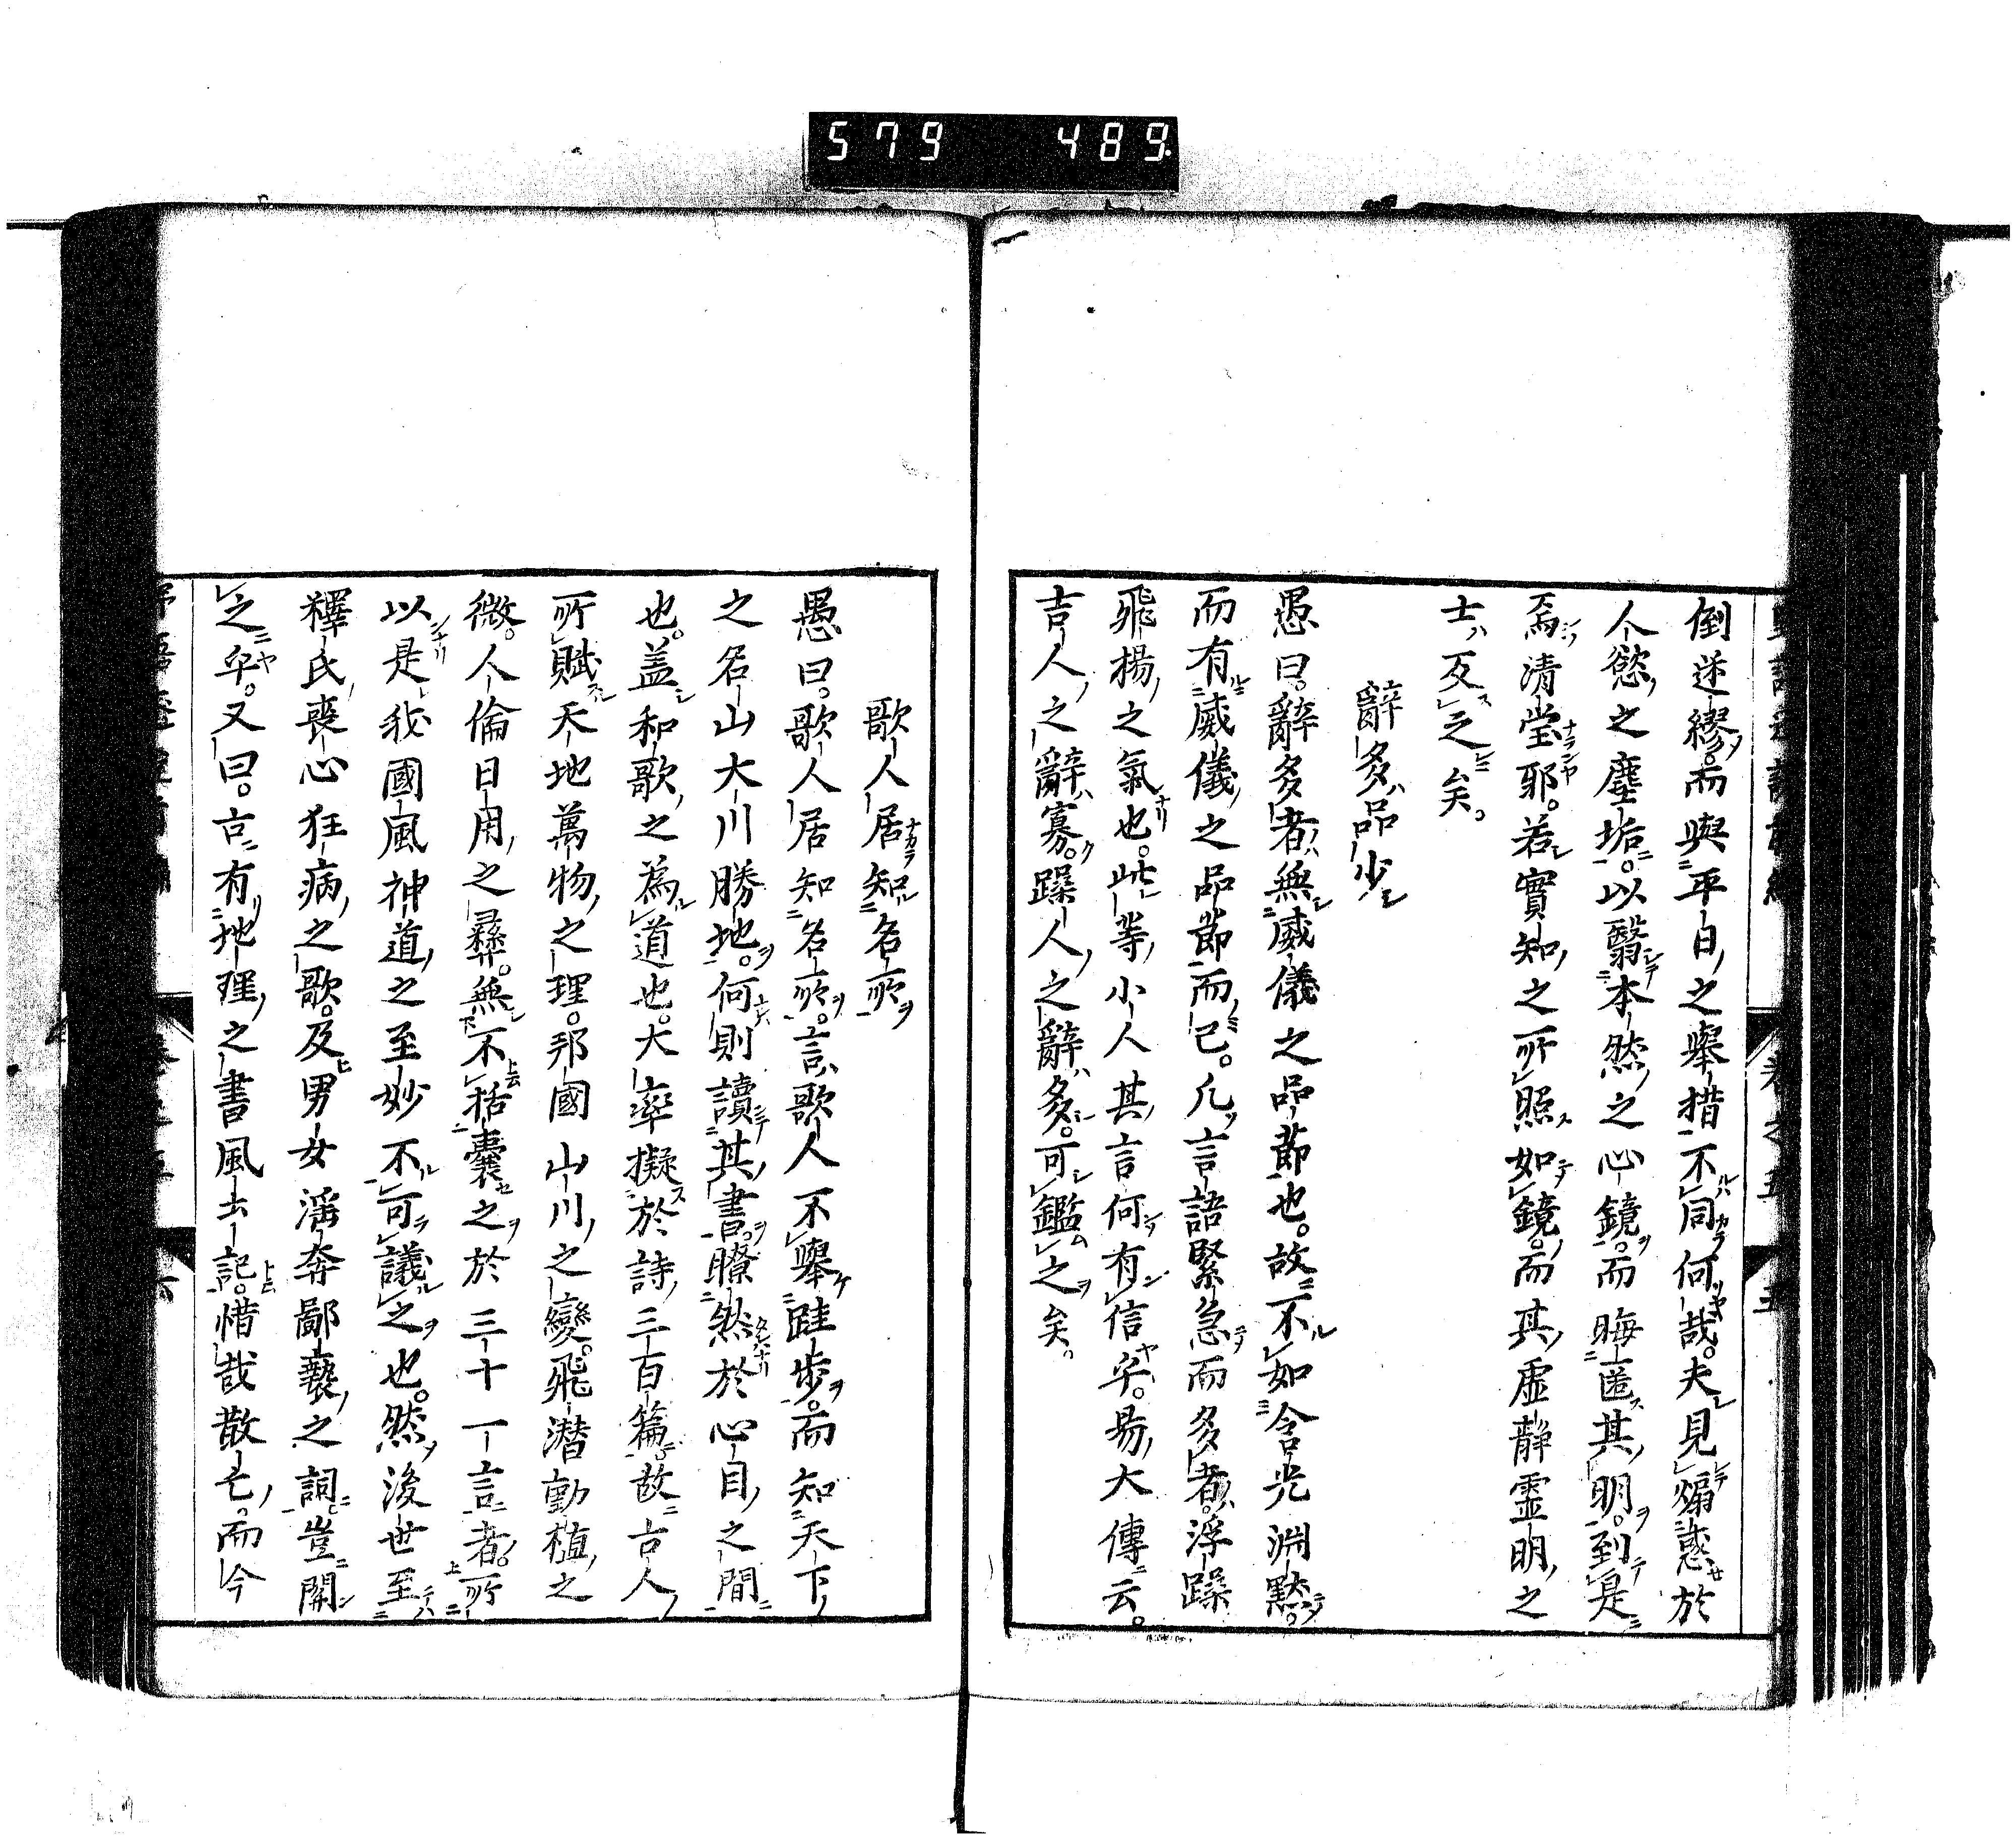 579 489
倒逆繆而與平日之舉措不同何哉夫見煽惑於
人慾之塵垢以翳本然之心鏡而晦匿其明到是
焉清瑩邪若實知之所照如鏡而其虛静霊明之
士反之矣
辭多品少
愚曰辭多者無威儀之品節也故不如含光淵黙
而有威儀之品節而已凡言語緊急而多者浮躁
飛揚之氣也此等小人其言何有信乎易大傳云
吉人之辭寡躁人之辭多可鑑之矣
歌人居知名所
愚曰歌人居知名所言歌人不舉跬歩而知天下
之名山大川勝地何則讀其書瞭然於心目之間
也盖和歌之為道也大率擬於詩三百篇故古人
所賦天地萬物之理邦國山川之變飛潜動植之
微人倫日用之彛無不括囊之於三十一言者所
以是我國風神道之至妙不可議之也然後世至
釋氏喪心狂病之歌及男女滛奔鄙褻之詞豈關
之乎又曰古有地理之書風土記惜哉散亡而今